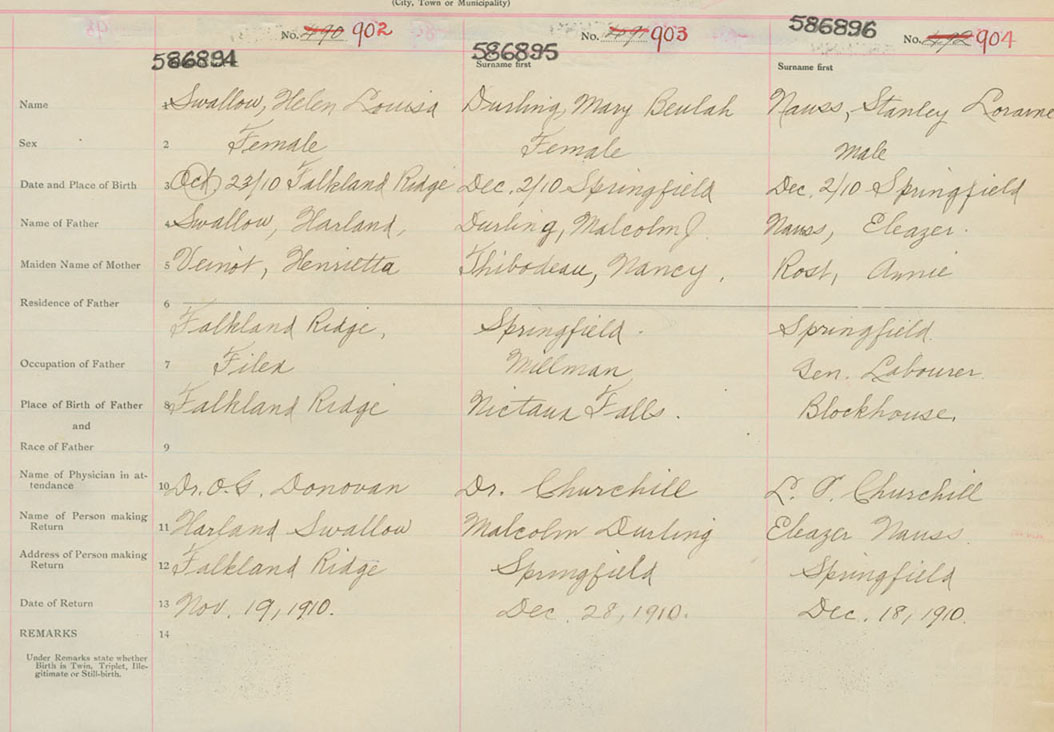 (City, Town or Municipality)
No. 490 902 No. 491 903 586896 No. 492 904
586894 586895
Surname first Surname first
Name 1 Swallow, Helen Louisa Durling, Mary Beulah Nauss, Stanley Loraine
Sex 2 Female Female Male
Date and Place of Birth 3 Oct 23/10 Falkland Ridge Dec. 2/10 Springfield Dec. 2/10 Springfield
Name of Father 4 Swallow, Harland, Durling, Malcolm J. Nauss, Eleazer.
Maiden Name of Mother 5 Veinot, Henrietta Thibodeau, Nancy. Rost, Annie
Residence of Father 6
Falkland Ridge, Springfield. Springfield.
Occupation of Father 7 Millman Gen. Labourer.
Place of Birth of Father 8 Falkland Ridge Nictaux Falls. Blockhouse.
and
Race of Father 9
Name of Physician in at-
tendance 10 Dr. O. G. Donovan Dr. Churchill L. P. Churchill
Name of Person making
Return 11 Harland Swallow Malcolm Durling Eleazer Nauss.
Address of Person making
Return 12 Falkland Ridge Springfield Springfield
Date of Return 13 Nov. 19, 1910. Dec. 28, 1910. Dec. 18, 1910.
REMARKS 14
Under Remarks state whether
Birth is Twin, Triplet, Ille-
gitimate or Still-birth.